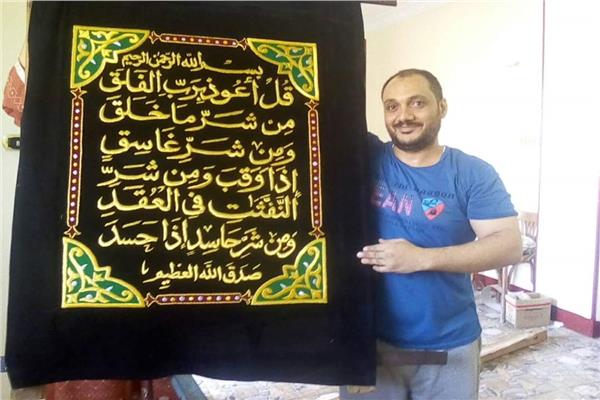 بسم الله الرحمن الرحيم
قل أعوذ برب الفلق
من شر ما خلق
ومن شر غاسق
إذا وقب ومن شر
النفثت في العقد
ومن شر حاسد إذا حسد
صدق الله العظيم
EAN